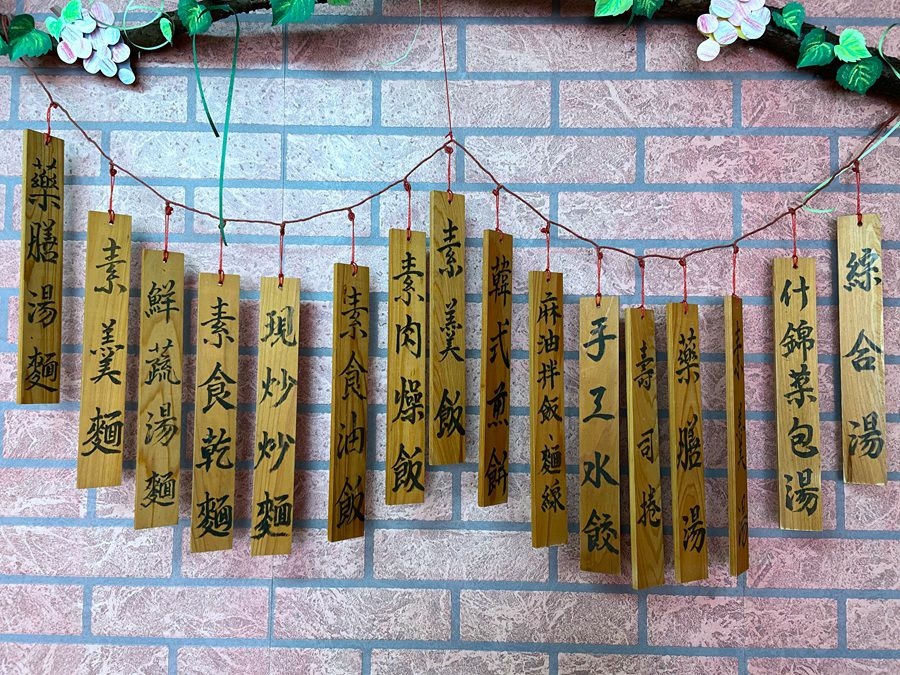 藥膳湯麵
素羹麵
鮮蔬湯麵
素食乾麵
現炒炒麵
素食油飯
素肉燥飯
素羹飯
韓式煎餅
麻油拌飯.麵線
手工水餃
壽司捲
藥膳湯
什錦菜包湯
綜合湯